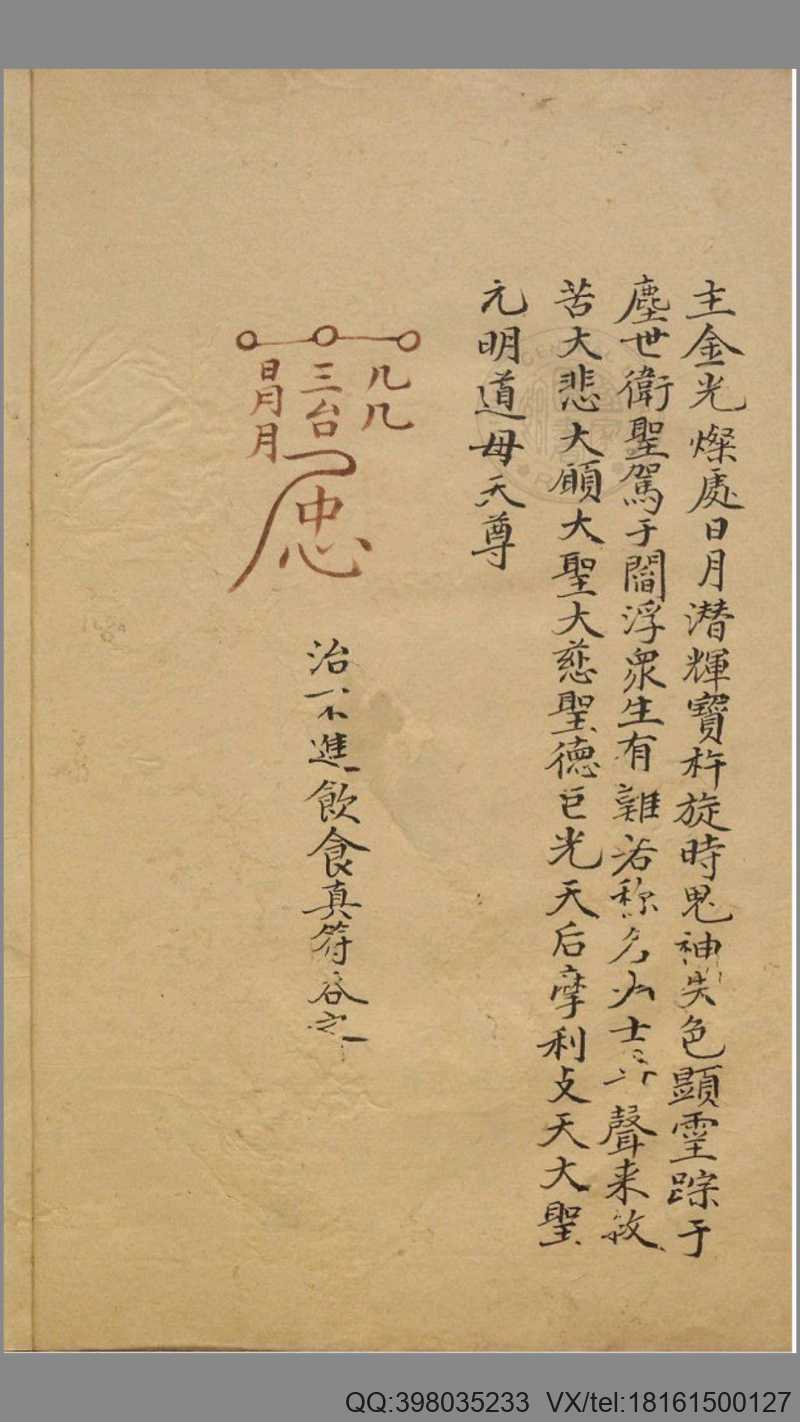 主金光燦處日月潜輝寶杵旋時鬼神失色顯霊踪于
塵世衛聖駕于閻浮衆生有難若称名
聲来救
苦大悲大願大聖大慈聖德巨光天后摩利攴天大聖
元明道母天尊
几几
三台
日月月
忠
治
不進飲食真符
QQ:398035233 VX/tel:18161500127